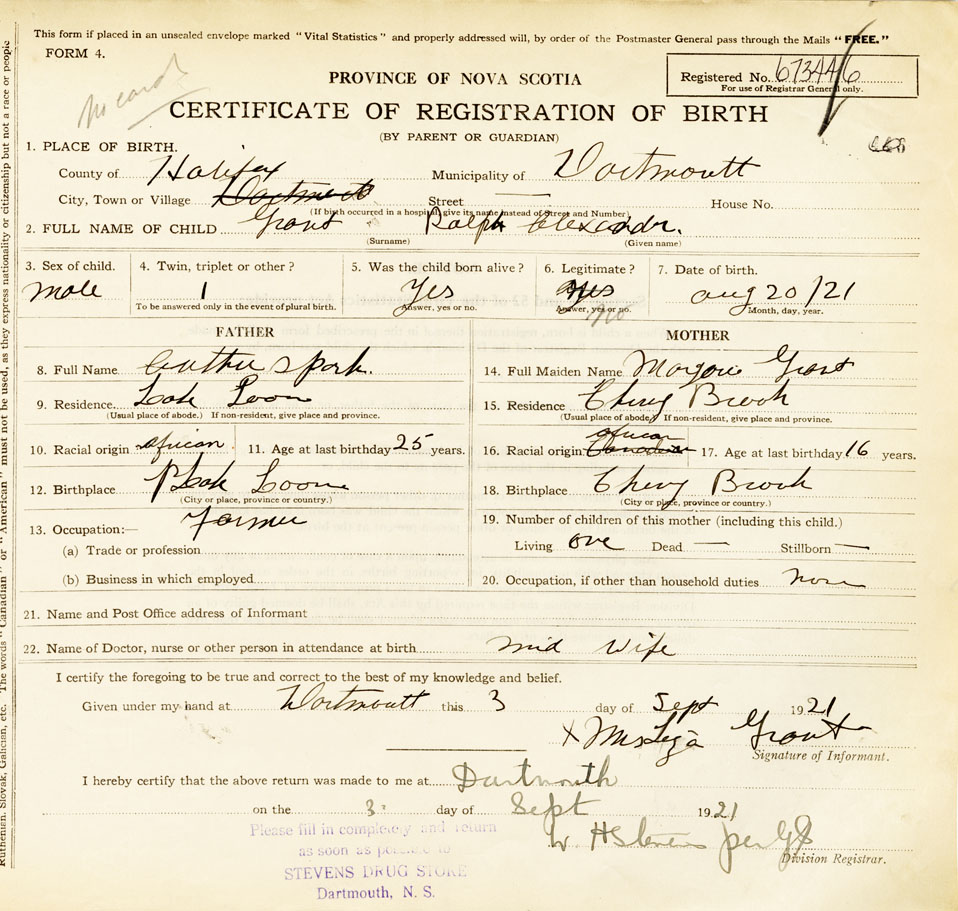 This form if placed in an unsealed envelope marked "Vital Statistics" and properly addressed will, by order of the Postmaster General pass through the Mails "FREE."
FORM 4.
no card
PROVINCE OF NOVA SCOTIA
Registered No. 673446
For use of Registrar General only.
CERTIFICATE OF REGISTRATION OF BIRTH
(BY PARENT OR GUARDIAN)
1. PLACE OF BIRTH.
County of Halifax Municipality of Dartmoutt
City, Town or Village Street — House No.
(If birth occurred in a hospital give its name instead of Street and Number)
2. FULL NAME OF CHILD Grant Ralph Alexandr.
(Surname) (Given name)
3. Sex of child. 4. Twin, triplet or other? 5. Was the child born alive? 6. Legitimate? 7. Date of birth.
male 1 Yes Yes Aug 20/21
To be answered only in the event of plural birth. Answer, yes or no. Answer, yes or no. Month, day, year.
no
FATHER MOTHER
8. Full Name 14. Full Maiden Name Grant
9. Residence Loon 15. Residence Brook
(Usual place of abode.) If non-resident, give place and province. (Usual place of abode) If non-resident, give place and province.
10. Racial origin african 11. Age at last birthday 25 years. 16. Racial origin Canadian african 17. Age at last birthday 16 years.
12. Birthplace Loon 18. Birthplace Brook
(City or place, province or country.) (City or place, province or country.)
13. Occupation:— Farmer 19. Number of children of this mother (including this child.)
(a) Trade or profession Living one Dead — Stillborn —
(b) Business in which employed 20. Occupation, if other than household duties none
21. Name and Post Office address of Informant
22. Name of Doctor, nurse or other person in attendance at birth mid wife
I certify the foregoing to be true and correct to the best of my knowledge and belief.
Given under my hand at Dartmoutt this 3 day of Sept 1921
X Mrs Grant
Signature of Informant.
I hereby certify that the above return was made to me at Dartmouth
on the 3 day of Sept 1921
W. H Stevens per
Division Registrar.
Please fill in completely and return
as soon as possible to
STEVENS DRUG STORE
Dartmouth, N. S.
Ruthenian, Slovak, Galician, etc. The words "Canadian" or "American" must not be used, as they express nationality or citizenship but not a race or people